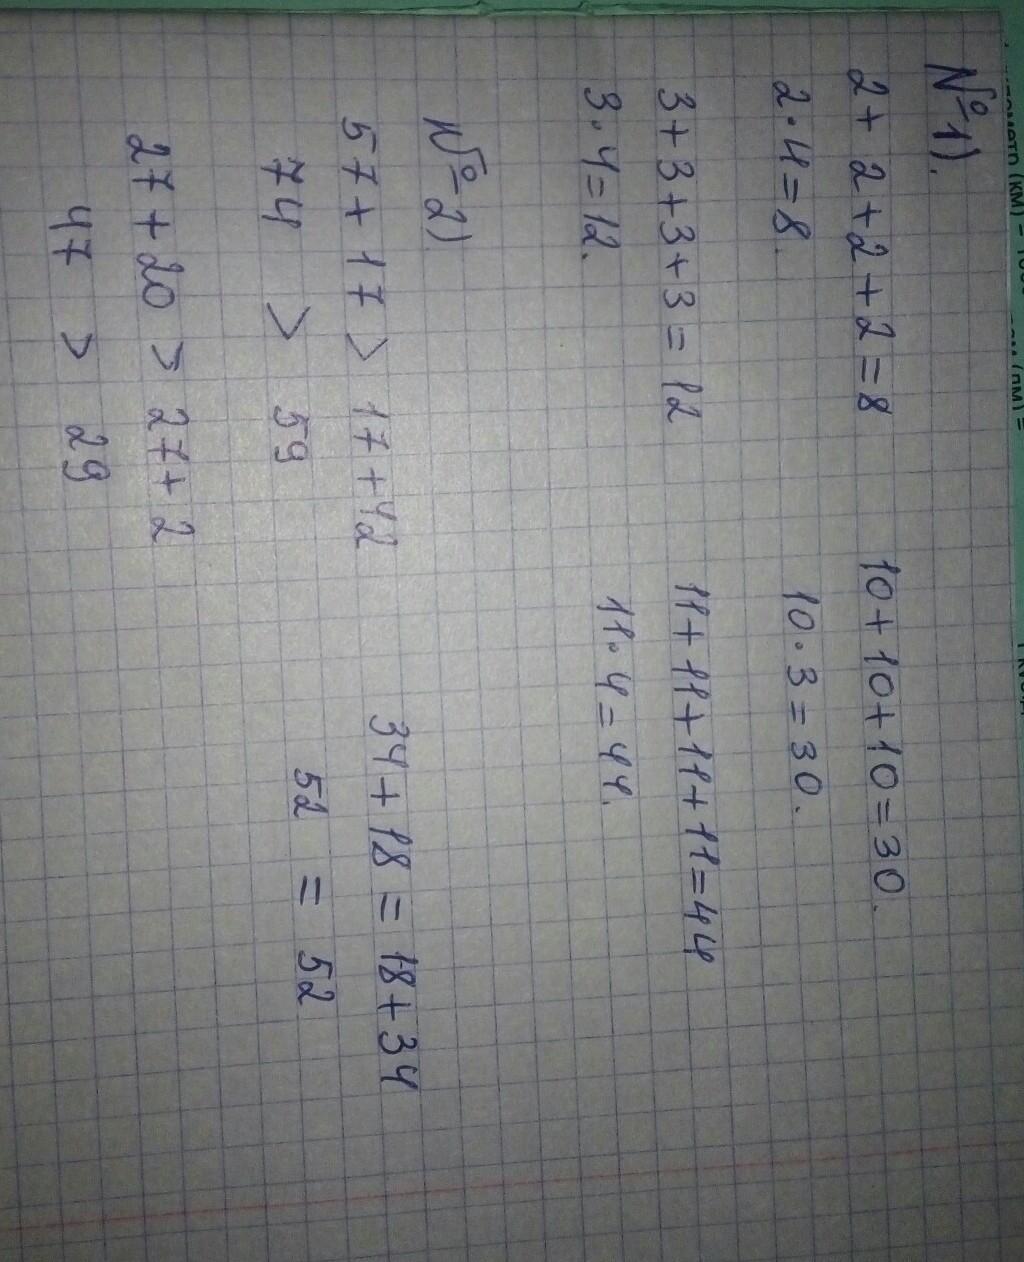 №1).
2+2+2+2=8 10+10+10=30.
2·4=8. 10·3=30.
3+3+3+3=12 11+11+11+11=44
3·4=12. 11·4=44.
№2)
57+17>17+42 34+18=18+34
74 > 59 52 = 52
27+20>27+2
47 > 29